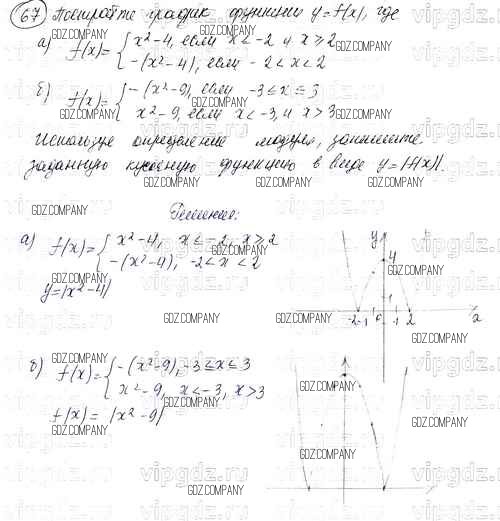 67 Постройте график функции y=f(x), где
а) f(x)= { x²-4, если x<-2 и x≥2
-(x²-4), если -2<x<2
б) f(x)= { -(x²-9), если -3≤x≤3
x²-9, если x<-3, и x>3
Используя определение модуля, запишите
заданную кусочную функцию в виде y=|f(x)|.
Решение:
а) f(x)= { x²-4, x≤-2, x≥2
-(x²-4), -2<x<2
y=|x²-4|
y
4
1
-2 -1 0 1 2 x
б) f(x)= { -(x²-9), -3≤x≤3
x²-9, x<-3, x>3
f(x)= |x²-9|
GDZ.COMPANY
vipgdz.ru